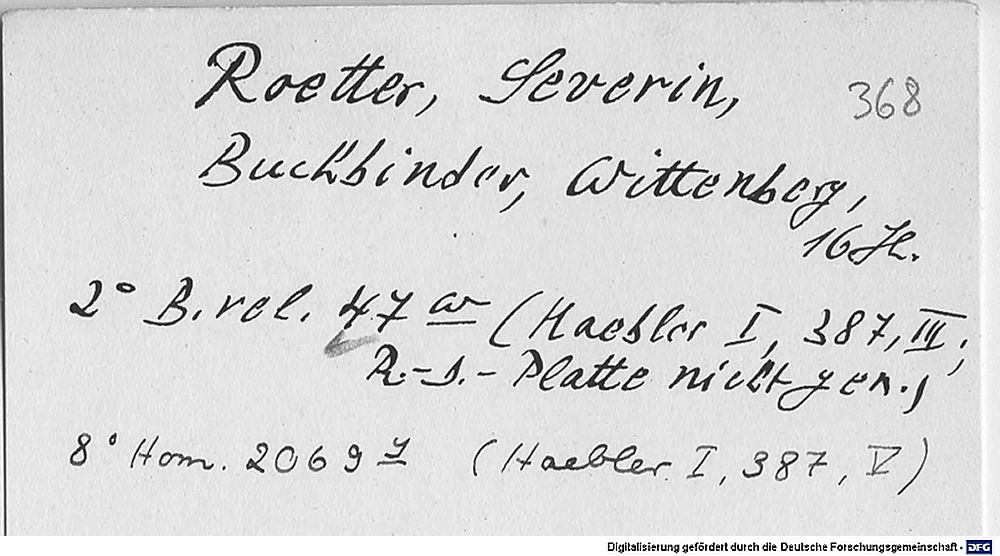 Roetter, Severin,
368
Buchbinder, Wittenberg,
16 Jh.
2° B.rel. 47 w (Haebler I, 387, III;
R.-S.-Platte nicht gen.)
8° Hom. 2069 y (Haebler I, 387, V)
Digitalisierung gefördert durch die Deutsche Forschungsgemeinschaft - DFG